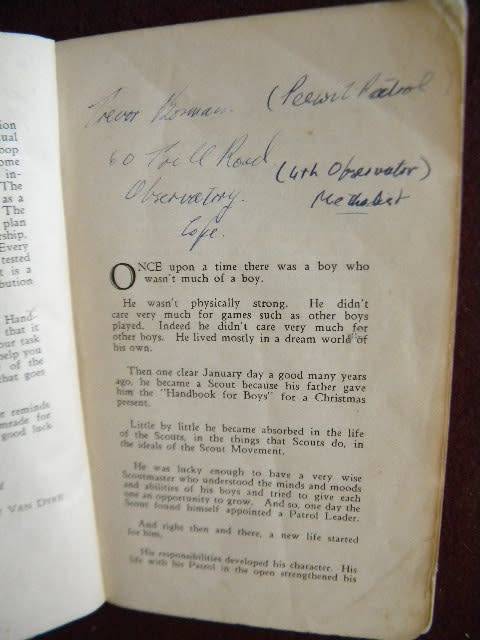 ion
ual
oop
ome
in-
The
as a
The
plan
rship.
Every
tested
t is a
bution
Hand-
that it
our task
help you
of the
that goes
e reminds
mrade for
good luck
VAN DYKE
Trevor Bowman. (Peewit Patrol
60 Trill Road (4th Observatory)
Observatory. Methodist
Cape.
ONCE upon a time there was a boy who
wasn't much of a boy.
He wasn't physically strong. He didn't
care very much for games such as other boys
played. Indeed he didn't care very much for
other boys. He lived mostly in a dream world of
his own.
Then one clear January day a good many years
ago, he became a Scout because his father gave
him the "Handbook for Boys" for a Christmas
present.
Little by little he became absorbed in the life
of the Scouts, in the things that Scouts do, in
the ideals of the Scout Movement.
He was lucky enough to have a very wise
Scoutmaster who understood the minds and moods
and abilities of his boys and tried to give each
one an opportunity to grow. And so, one day the
Scout found himself appointed a Patrol Leader.
And right then and there, a new life started
for him.
His responsibilities developed his character. His
life with his Patrol in the open strengthened his